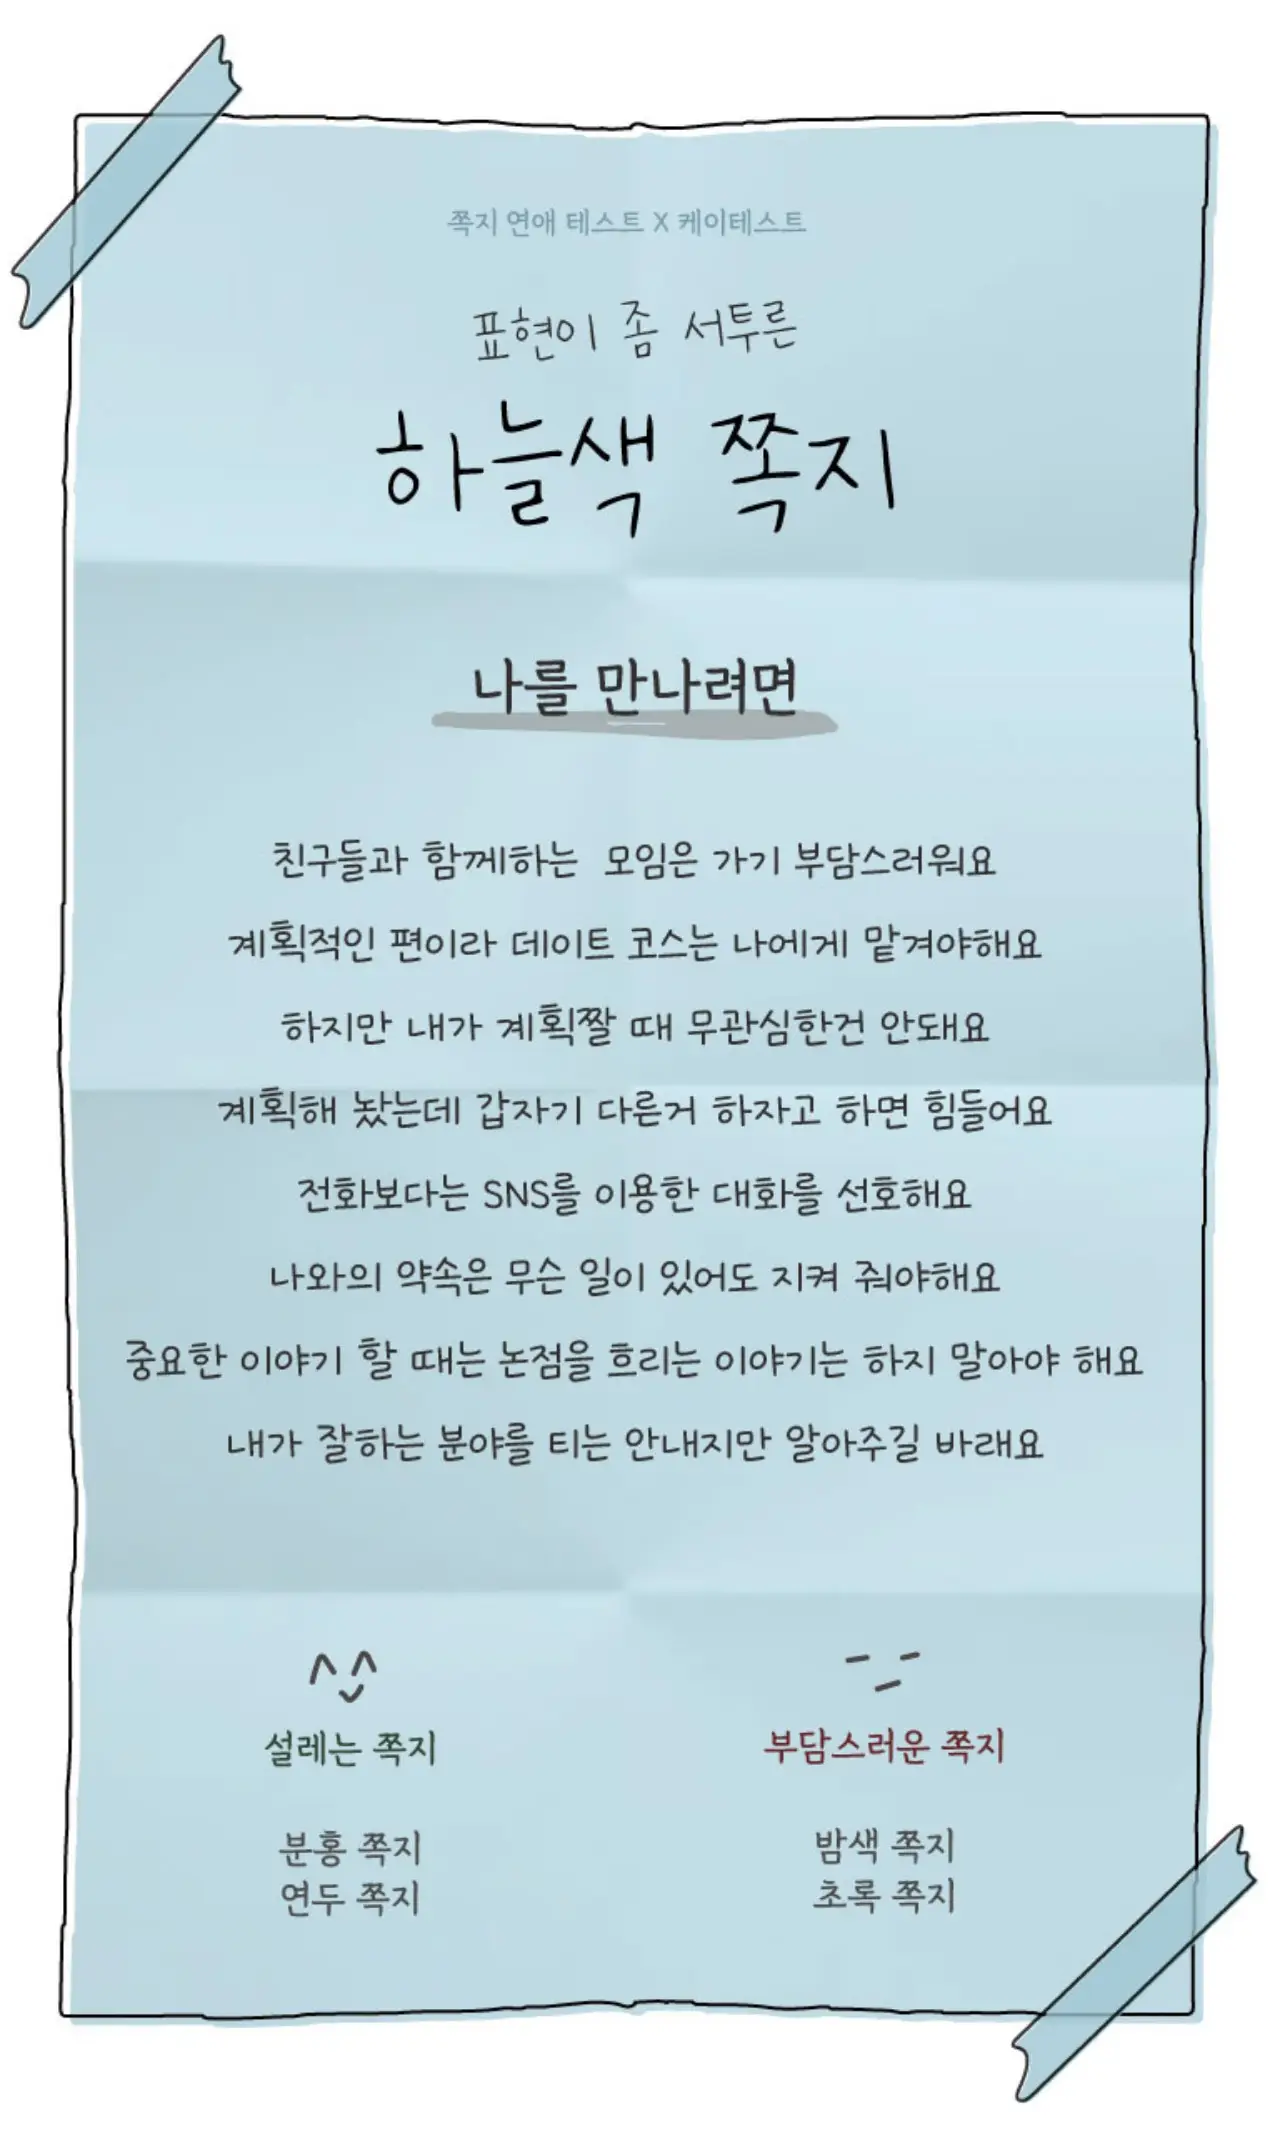 쪽지 연애 테스트 X 케이테스트
표현이 좀 서투른
하늘색 쪽지
나를 만나려면
친구들과 함께하는 모임은 가기 부담스러워요
계획적인 편이라 데이트 코스는 나에게 맡겨야해요
하지만 내가 계획짤 때 무관심한건 안돼요
계획해 놨는데 갑자기 다른거 하자고 하면 힘들어요
전화보다는 SNS를 이용한 대화를 선호해요
나와의 약속은 무슨 일이 있어도 지켜 줘야해요
중요한 이야기 할 때는 논점을 흐리는 이야기는 하지 말아야 해요
내가 잘하는 분야를 티는 안내지만 알아주길 바래요
설레는 쪽지
분홍 쪽지
연두 쪽지
부담스러운 쪽지
밤색 쪽지
초록 쪽지